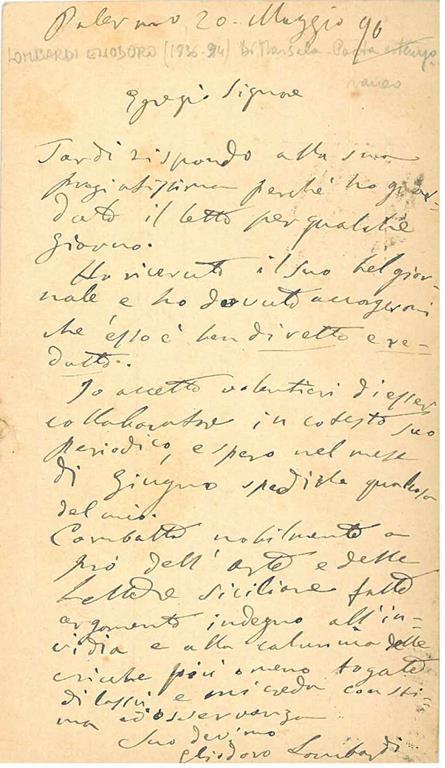 Palermo 20. Maggio 90
LOMBARDI ELIODORO (1836-94) Di Marsala - Poeta estempo
raneo
Egregio Signore
Tardi rispondo alla sua
pregiatissima perchè ho guar-
dato il letto per qualche
giorno.
Ho ricevuto il suo bel gior-
nale e ho dovuto accorgermi
che esso è ben diretto e re-
datto.
Io accetto volentieri di esser
collaboratore in cotesto suo
Periodico, e spero nel mese
di Giugno spedirle qualcosa
del mio.
Combatto nobilmente a
prò dell'arte e delle
lettere siciliane fatte
argomento indegno all'in-
vidia e alla calunnia delle
cricche più o meno togate
di lassù e mi creda con sti-
ma ed osservanza
Suo dev.mo
Eliodoro Lombardi